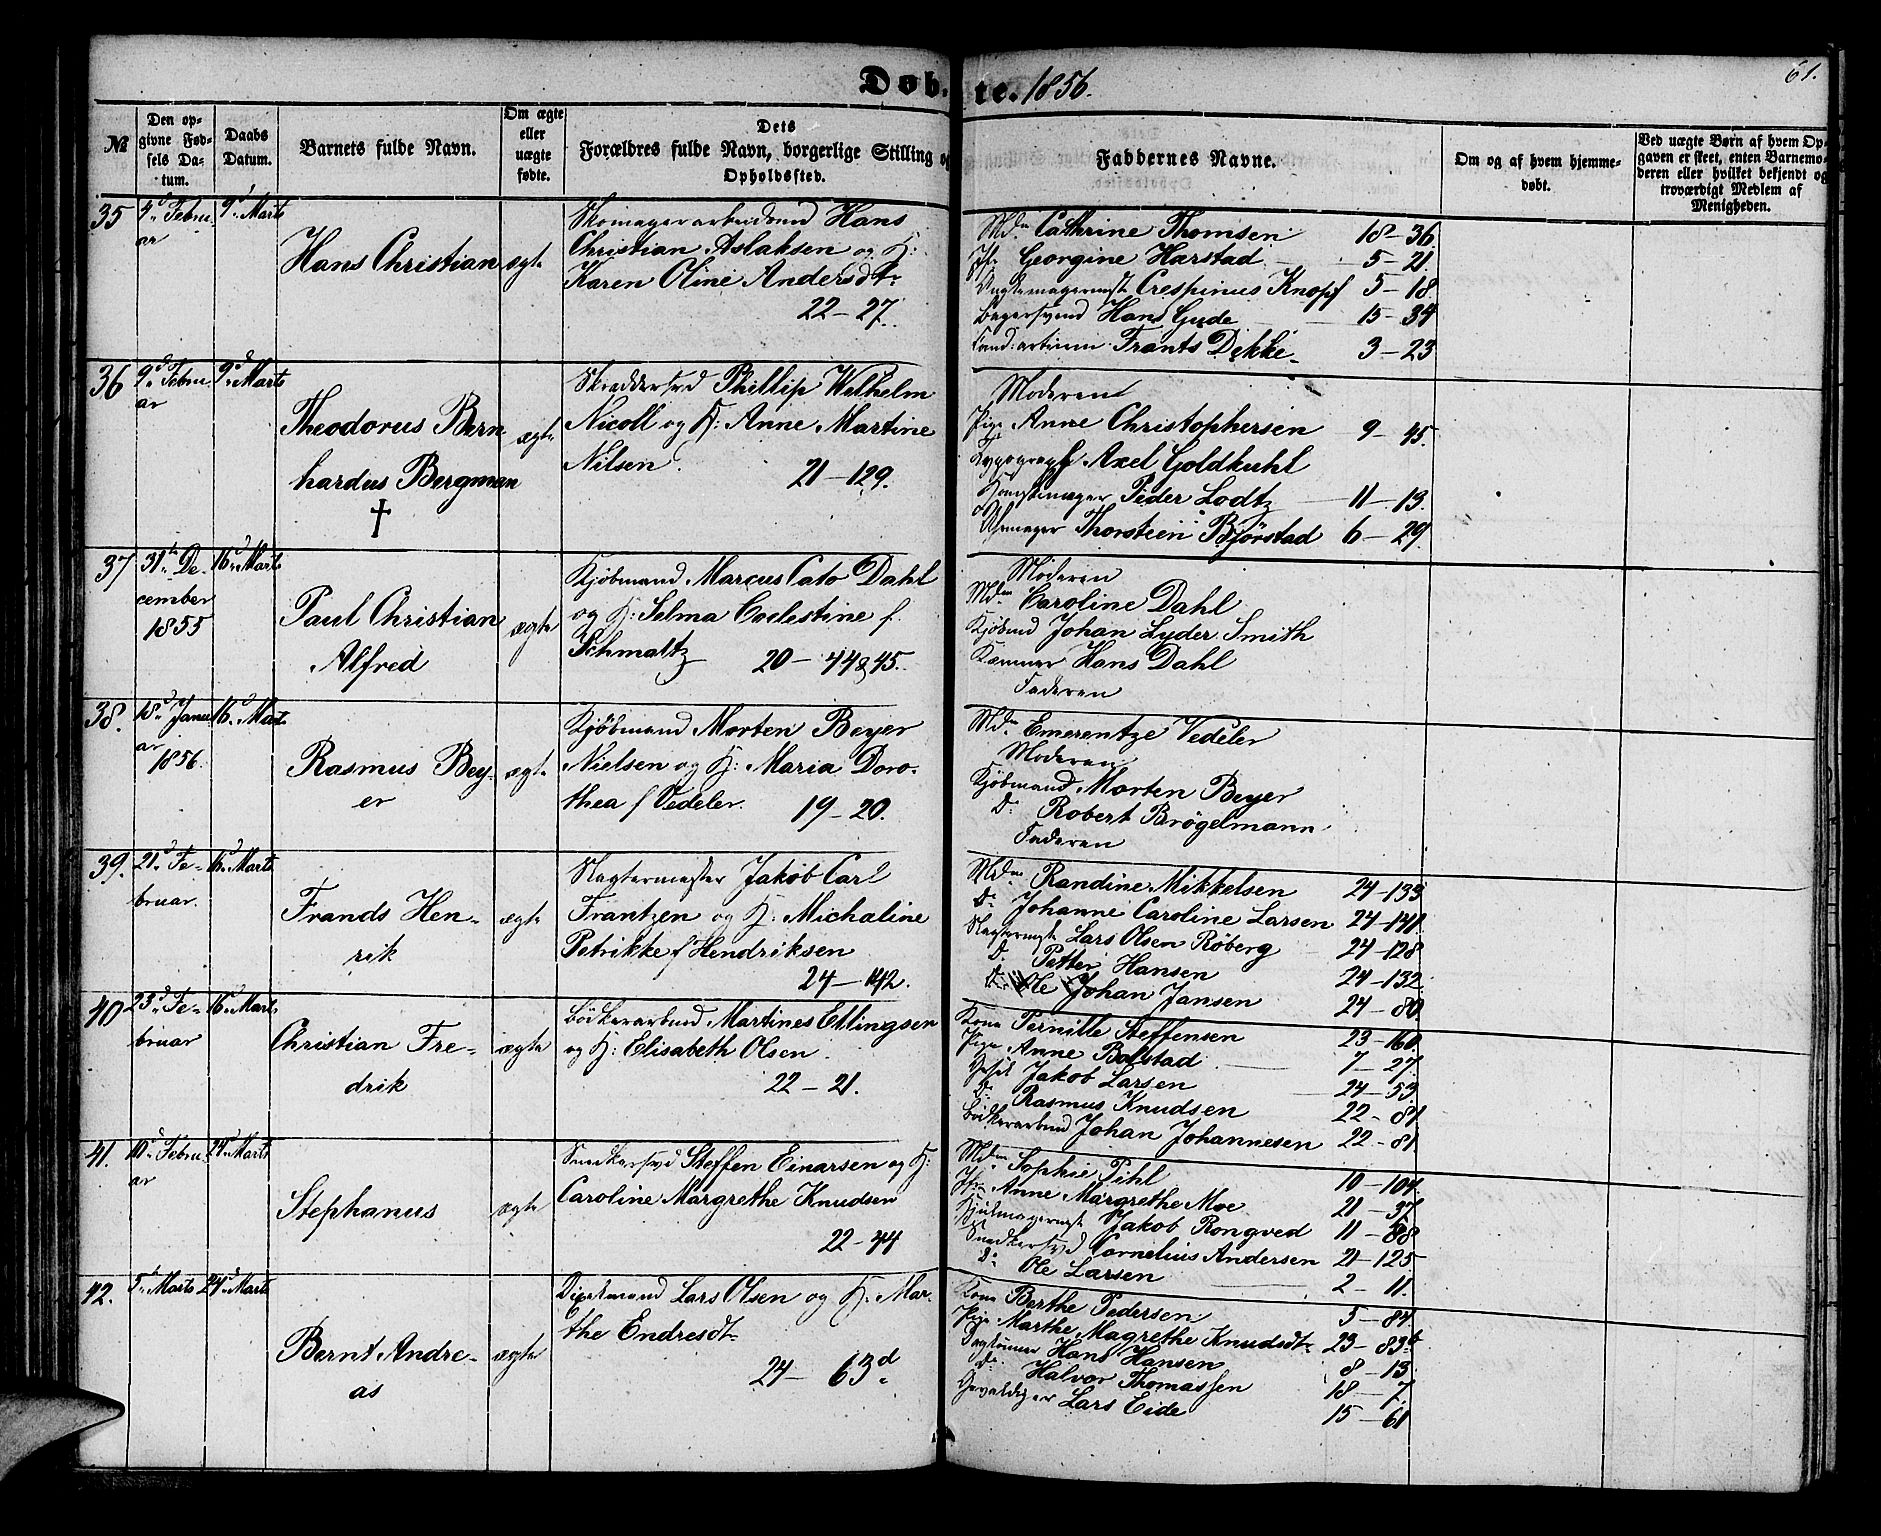 Døb-
te. 1856.
61.
№
Den op-
givne Fød-
sels Da-
tum.
Daabs
Datum.
Barnets fulde Navn.
Om ægte
eller
uægte
fødte.
Dets
Forældres fulde Navn, borgerlige Stilling og
Opholdssted.
Faddernes Navne.
Om og af hvem hjemme-
døbt.
Ved uægte Børn af hvem Op-
gaven er skeet, enten Barnemo-
deren eller hvilket bekjendt og
troværdigt Medlem af
Menigheden.
35
4d Febru-
ar
9d Marts
Hans Christian
ægte
Skomagerarbeidsmd Hans
Christian Aslaksen og K:
Karen Oline Andersdtr
22-27.
Mdm Cathrine Thomsen 18-36
Jfr Georgine Harstad 5-21
Crespinus Knopf 5-18
Bagersvend Hans Gude 15-34
Cand: artium Frants Dekke 3-23
36
9d Febru-
ar
9d Marts
Theodorus Bern
hardus Bergman
†
ægte
Skræddersvd Phillip Wilhelm
Nicoll og K: Anne Martine
Nilsen. 21-129.
Moderen
Pige Anne Christophersen 9-45.
Typograph Axel Goldkuhl
Peder Lodtz 11-13.
Uhrmager Thorstein Bjørstad 6-29.
37
31te De-
cember
1855
16d Marts
Paul Christian
Alfred
ægte
Kjøbmand Marcus Cato Dahl
og K: Selma Coelestine f.
Schmaltz 20-44&45.
Moderen
Mdm Caroline Dahl
Kjøbmd Johan Lyder Smith
Kæmner Hans Dahl
Faderen
38.
18d Janu-
ar
1856.
16d Marts
Rasmus Bey-
er
ægte
Kjøbmand Morten Beyer
Nielsen og K: Maria Doro-
thea f Vedeler. 19-20.
Mdm Emerentze Vedeler
Moderen
Kjøbmand Morten Beyer
Do Robert Brøgelmann
Faderen
39.
21d Fe-
bruar.
16d Marts
Frands Hen-
rik
ægte
Slagtermester Jakob Carl
Frantzen og K: Michaline
Petrikke f Hendriksen
24-142.
Mdm Randine Mikkelsen 24-133
Do Johanne Caroline Larsen 24-141.
Slagtermstr Lars Olsen Røberg 24-128
Do Petter Hansen 24-132
Do Johan Jansen 24-80
40
23d Fe-
bruar
16d Marts
Christian Fre-
drik
ægte
Bødkerarbmd Martines Ellingsen
og K: Elisabeth Olsen.
22-21.
Kone Pernille Steffensen 23-160.
Pige Anne Bolstad 7-27.
Jakob Larsen 24-53
Do Rasmus Knudsen 22-81
Bødkerarbmd Johan Johannesen 22-81
41.
10d Febru-
ar
24d Marts
Stephanus
ægte
Snedkersvd Steffen Einarsen og K:
Caroline Margrethe Knudsen
22-44
Mdm Sophie Pihl 10-104
Jfr Anne Margrethe Moe 21-37
Hjulmagermstr Jakob Rongved 11-88
Snedkersvd Cornelius Andersen 21-125
Do Ole Larsen 2-11.
42.
5d Marts
24d Marts
Bernt Andre-
as
ægte
Lars Olsen og K: Mar-
the Endresdtr
24-63d
Kone Berthe Pedersen 5-84
Pige Marthe Magrethe Knudsdtr 23-83b
Hans Hansen 8-13
Do Halvor Thomassen 18-7
Gevaldiger Lars Eide 15-61